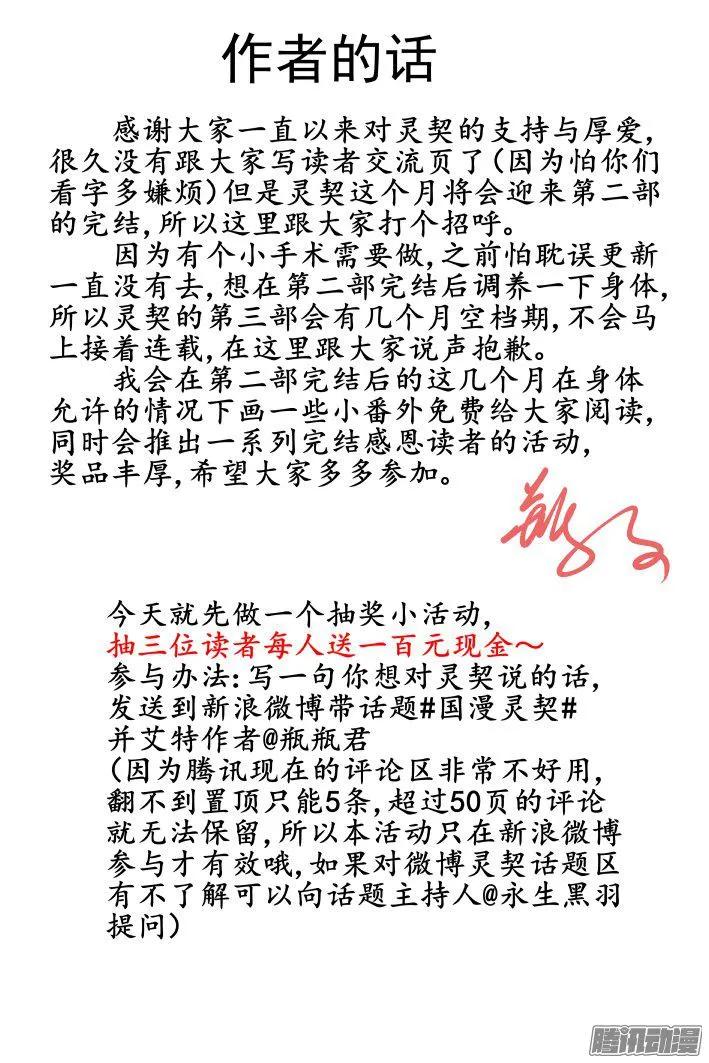 作者的话
感谢大家一直以来对灵契的支持与厚爱,
很久没有跟大家写读者交流页了(因为怕你们
看字多嫌烦)但是灵契这个月将会迎来第二部
的完结,所以这里跟大家打个招呼。
因为有个小手术需要做,之前怕耽误更新
一直没有去,想在第二部完结后调养一下身体,
所以灵契的第三部会有几个月空档期,不会马
上接着连载,在这里跟大家说声抱歉。
我会在第二部完结后的这几个月在身体
允许的情况下画一些小番外免费给大家阅读,
同时会推出一系列完结感恩读者的活动,
奖品丰厚,希望大家多多参加。
今天就先做一个抽奖小活动,
抽三位读者每人送一百元现金～
参与办法:写一句你想对灵契说的话,
发送到新浪微博带话题#国漫灵契#
并艾特作者@瓶瓶君
(因为腾讯现在的评论区非常不好用,
翻不到置顶只能5条,超过50页的评论
就无法保留,所以本活动只在新浪微博
参与才有效哦,如果对微博灵契话题区
有不了解可以向话题主持人@永生黑羽
提问)
腾讯动漫